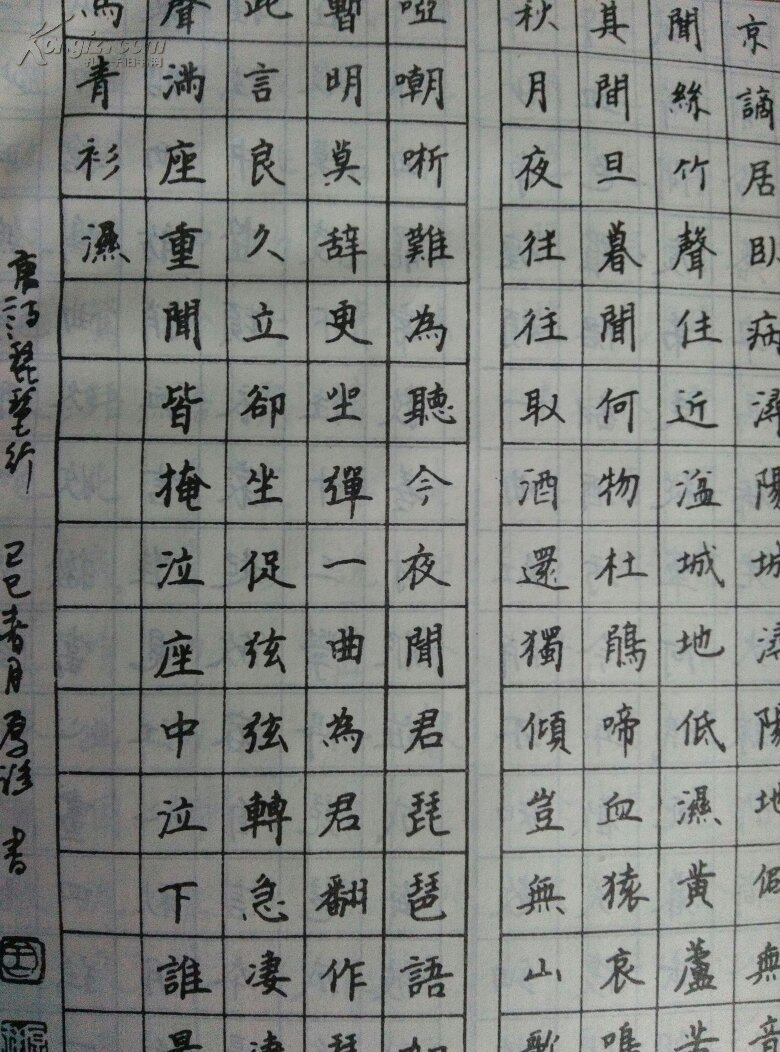 京謫居臥病潯陽城潯陽地僻無音
聞絲竹聲住近湓城地低濕黄蘆苦
其間旦暮聞何物杜鵑啼血猿哀鳴
秋月夜往往取酒還獨傾豈無山歌
啞嘲哳難為聽今夜聞君琵琶語如
暫明莫辞更坐彈一曲為君翻作琵
此言良久立卻坐促弦弦轉急凄凄
聲滿座重聞皆掩泣座中泣下誰是
馬青衫濕
唐詩琵琶行 己巳春月 書